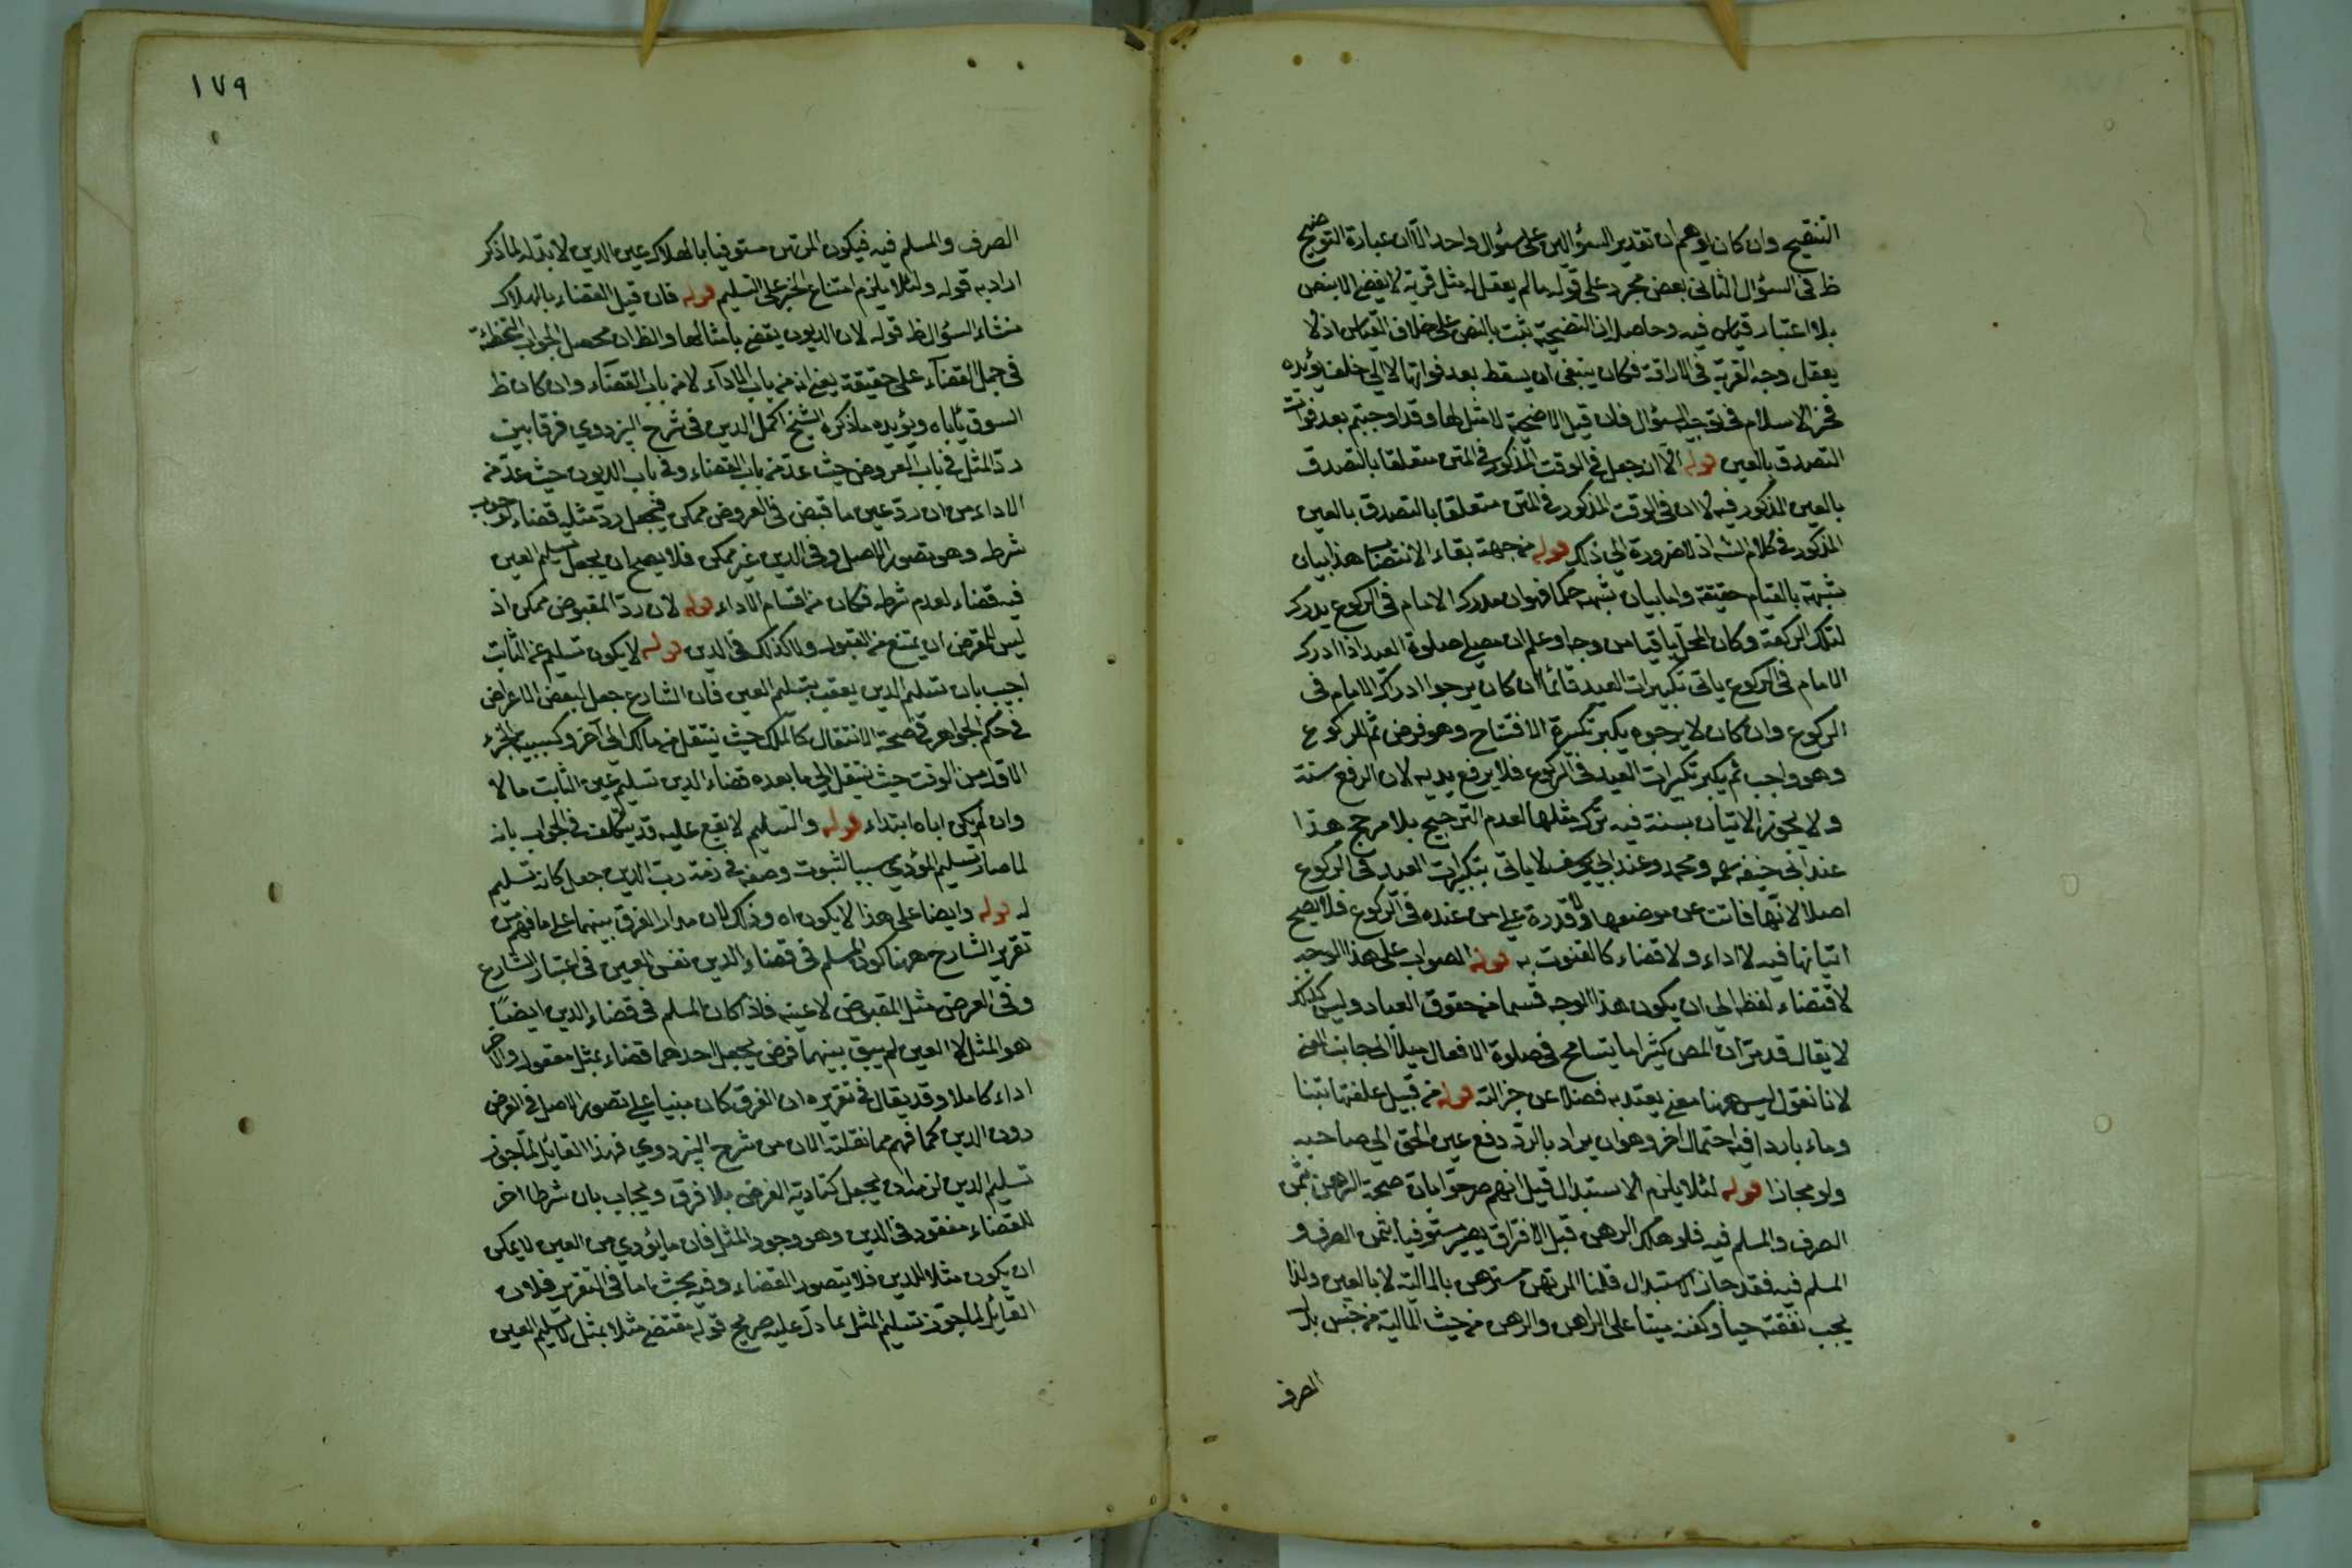 التنقيح وان كان يوهم ان تقدير السؤالين على سؤال واحد الا ان عبارة التوضيح
ظ في السؤال الثاني بعض مجرد على قوله ما لم يعقل له مثل قربة لا يقضي الا بنص
بلا اعتبار قياس فيه وحاصله ان التضحية ثبت بالنص على خلاف القياس اذ لا
يعقل وجه القربة في الاراقة فكان ينبغي ان يسقط بعد فواتها لا الى خلف يؤيده
فخر الاسلام في توجيه السؤال فان قيل الاضحية لا مثل لها وقد اوجبتم بعد فوات
التصدق بالعين قوله الا ان جعل في الوقت المذكور في المتن متعلقا بالتصدق
بالعين المذكور فيه لا ان في الوقت المذكور في المتن متعلقا بالتصدق بالعين
المذكور في كلام الشه اذ لا ضرورة الى ذلك قوله من جهة بقاء الانتصاب هذا بيان
شبهته بالقيام حقيقة واما بيان شبهه حكما فهو ان مدرك الامام في الركوع يدرك
لتلك الركعة وكان المحل باقيا من وجه وعلم ان مصلي صلوة العيد اذا ادرك
الامام في الركوع ياتي تكبيرات العيد قائما ان كان يرجوا ادراك الامام في
الركوع وان كان لا يرجوه يكبر تكبيرة الافتتاح وهو فرض ثم للركوع
وهو واجب ثم يكبر تكبيرات العيد في الركوع فلا يرفع يديه لان الرفع سنة
ولا يجوز الاتيان بسنة فيه ترك مثلها لعدم الترجيح بلا مرجح هذا
عند ابي حنيفه رحمه ومحمد وعند ابي يوسف لا ياتي بتكبيرات العيد في الركوع
اصلا لانها فاتت عن موضعها ولا قدرة على من عنده في الركوع فلا يصح
اتيانها فيه لا اداء ولا قضاء كالقنوت به قوله الصواب على هذا الوجه
لاقتضاء لفظ الى ان يكون هذا الوجه قسما من حقوق العباد وليس كذلك
لا يقال قد مر ان المص كثيرا ما يتسامح في صلوة الافعال ميلا الى جانب المعنى
لانا نقول ليس ههنا معنى يعتد به فضلا عن جزالته قوله من قبيل علفتها تبنا
وماء باردا فيه احتمال اخر وهو ان يراد بالرد دفع عين الحق الى صاحبه
ولو مجازا قوله لئلا يلزم الاستبدال قيل انهم صرحوا بان صحة الرهن بثمن
الصرف والمسلم فيه فلو هلك الرهن قبل الافتراق يصير مستوفيا بثمن الصرف و
المسلم فيه فقد جاز الاستبدال قلنا المرتهن مسترهن بالمالية لا بالعين ولذا
يجب نفقته حيا وكفنه ميتا على الراهن والرهن من حيث المالية من جنس بدل
الصرف
١٧٩
الصرف والمسلم فيه فيكون المرتهن مستوفيا بالهلاك عين الدين لا بدله لما ذكر
اراد به قوله ولئلا يلزم امتناع الجبر على التسليم قوله فان قيل القضاء بالهلاك
منشاء السؤال ظ قوله لان الديون يقضي بامثالها والظ ان محصل الجواب التخطئة
في حمل القضاء على حقيقة يعني انه من باب الاداء لا من باب القضاء وان كان ظ
السوق ياباه ويؤيده ما ذكره الشيخ اكمل الدين في شرح البزدوي فرقا بين
رد المثل في باب العروض حيث عد من باب القضاء وفي باب الديون حيث عد من
الاداء من ان رد عين ما قبض في القروض ممكن فيجعل رد مثله قضاء لوجوب
شرطه وهو تصور الاصل وفي الدين غير ممكن فلا يصح ان يجعل تسليم العين
فيه قضاء لعدم شرطه فكان من اقسام الاداء قوله لان رد المقبوض ممكن اذ
ليس للمقرض ان يمتنع من القبول ولا كذلك في الدين قوله لا يكون تسليم عين الثابت
اجيب بان تسليم الدين يعقب بتسليم العين فان الشارع جعل لبعض الاعراض
في حكم الجواهر في صحة الانتقال كالملك حيث ينتقل من مالك الى آخر وكسببية الجزء
الاول من الوقت حيث ينتقل الى ما بعده قضاء الدين تسليم عين الثابت مالا
وان لم يكن اياه ابتداء قوله والتسليم لا يقع عليه قد يتكلف في الجواب بانه
لما صار تسليم المؤدي سببا لثبوت وصفه في ذمة رب الدين جعل كانه تسليم
له قوله وايضا على هذا لا يكون اه وذلك لان مدار الفرق بينهما على ما فهم من
تقرير الشارح ههنا كون المسلم في قضاء الدين نفس العين في اعتبار الشارع
وفي القرض مثل المقبوض لا عينه فاذا كان المسلم في قضاء الدين ايضا
هو المثل لا العين لم يبق بينهما فرق يجعل احدهما قضاء بمثل معقول والآخر
اداء كاملا وقد يقال في تقريره ان الفرق كان مبنيا على تصور الاصل في القرض
دون الدين كما فهم مما نقلته الان من شرح البزدوي فهذا القائل لما جوز
تسليم الدين لزمه ان يجعل كتادية القرض بلا فرق ويجاب بان شرطا اخر
للقضاء مفقود في الدين وهو وجود المثل فان ما يؤدي من العين لا يمكن
ان يكون مثلا للدين فلا يتصور القضاء وفيه بحث اما في التقرير فلان
القائل لما جوز تسليم المثل عما دل عليه صريح قوله مقتضي مثلا بمثل لا تسليم العين